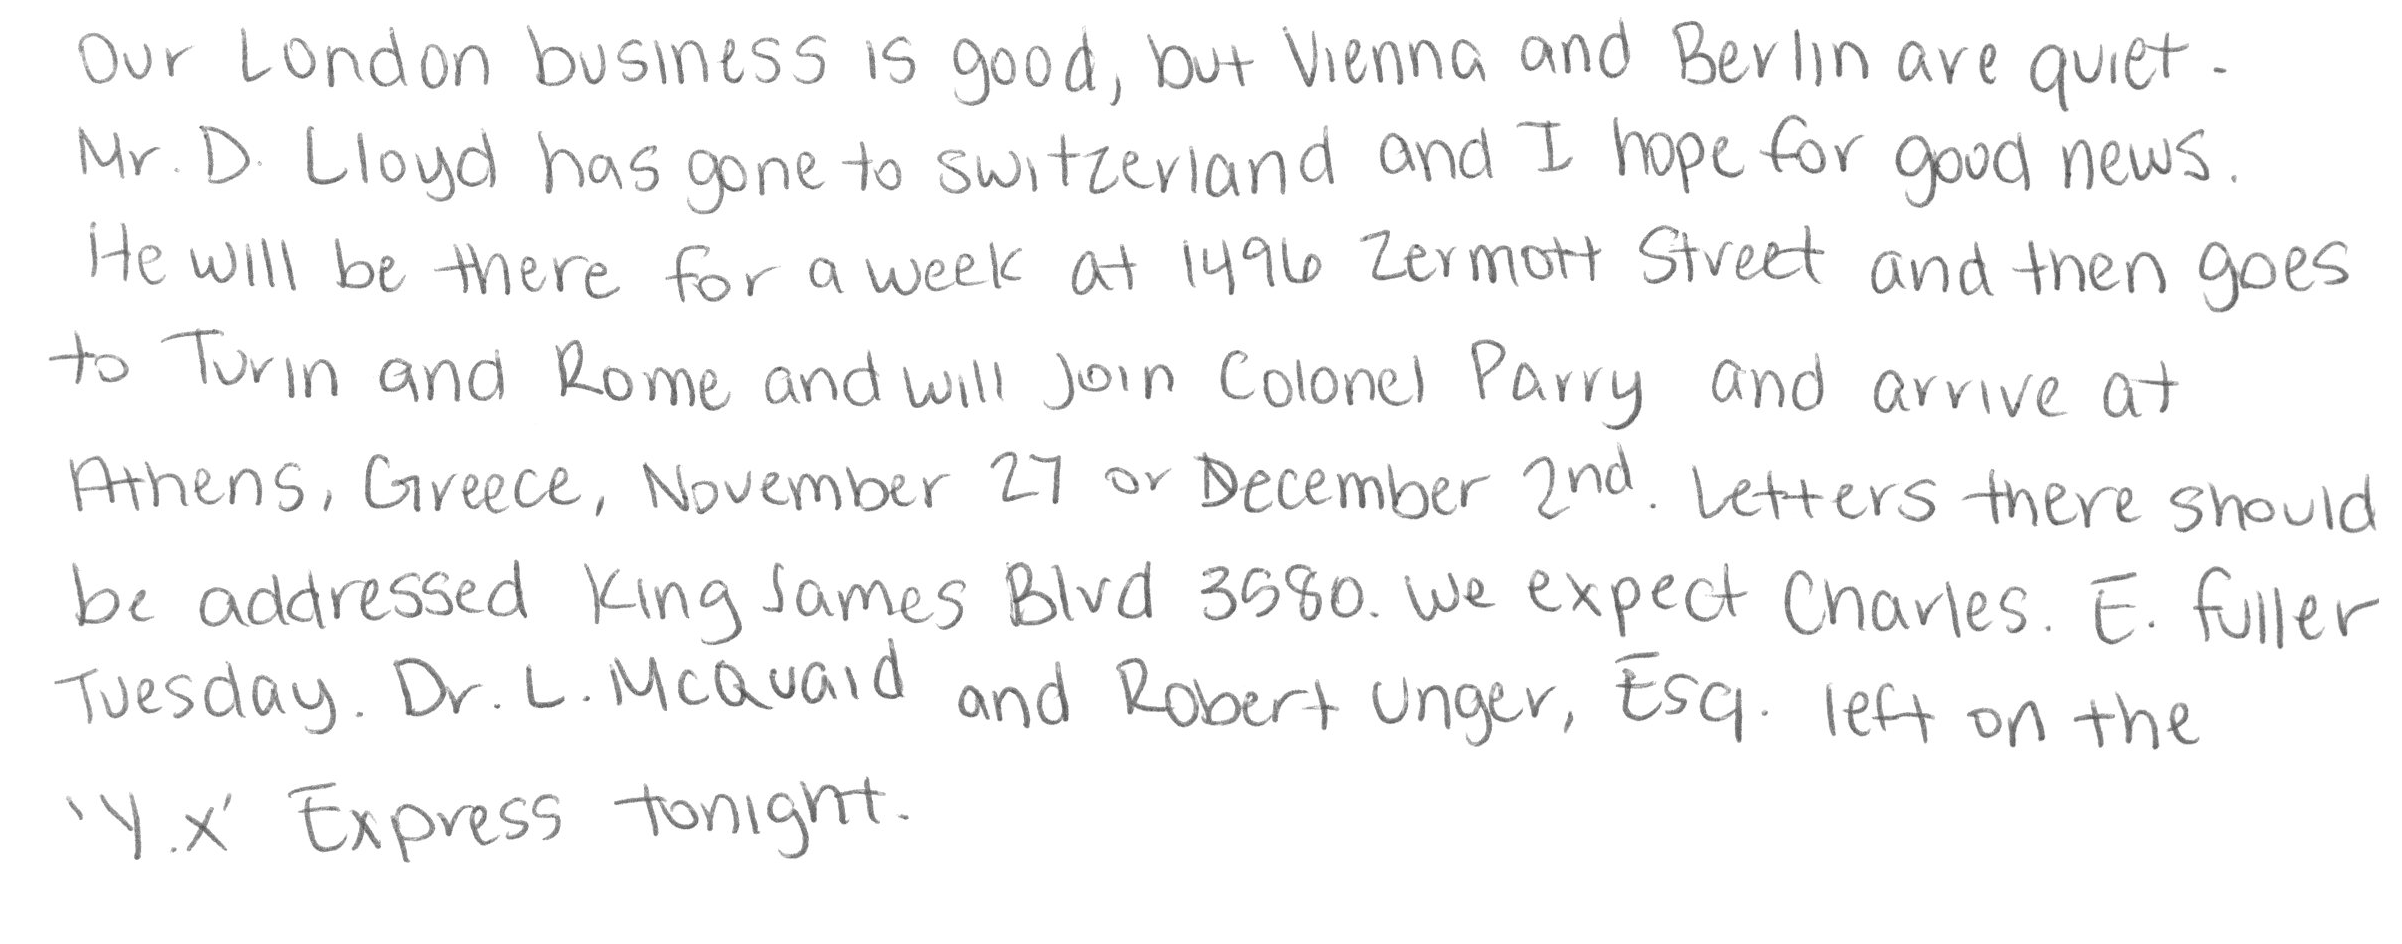 Our London business is good, but Vienna and Berlin are quiet.
Mr. D. Lloyd has gone to Switzerland and I hope for good news.
He will be there for a week at 1496 Zermott Street and then goes
to Turin and Rome and will join Colonel Parry and arrive at
Athens, Greece, November 27 or December 2nd. Letters there should
be addressed King James Blvd 3580. We expect Charles. E. Fuller
Tuesday. Dr. L. McQuaid and Robert Unger, Esq. left on the
'Y.X' Express tonight.